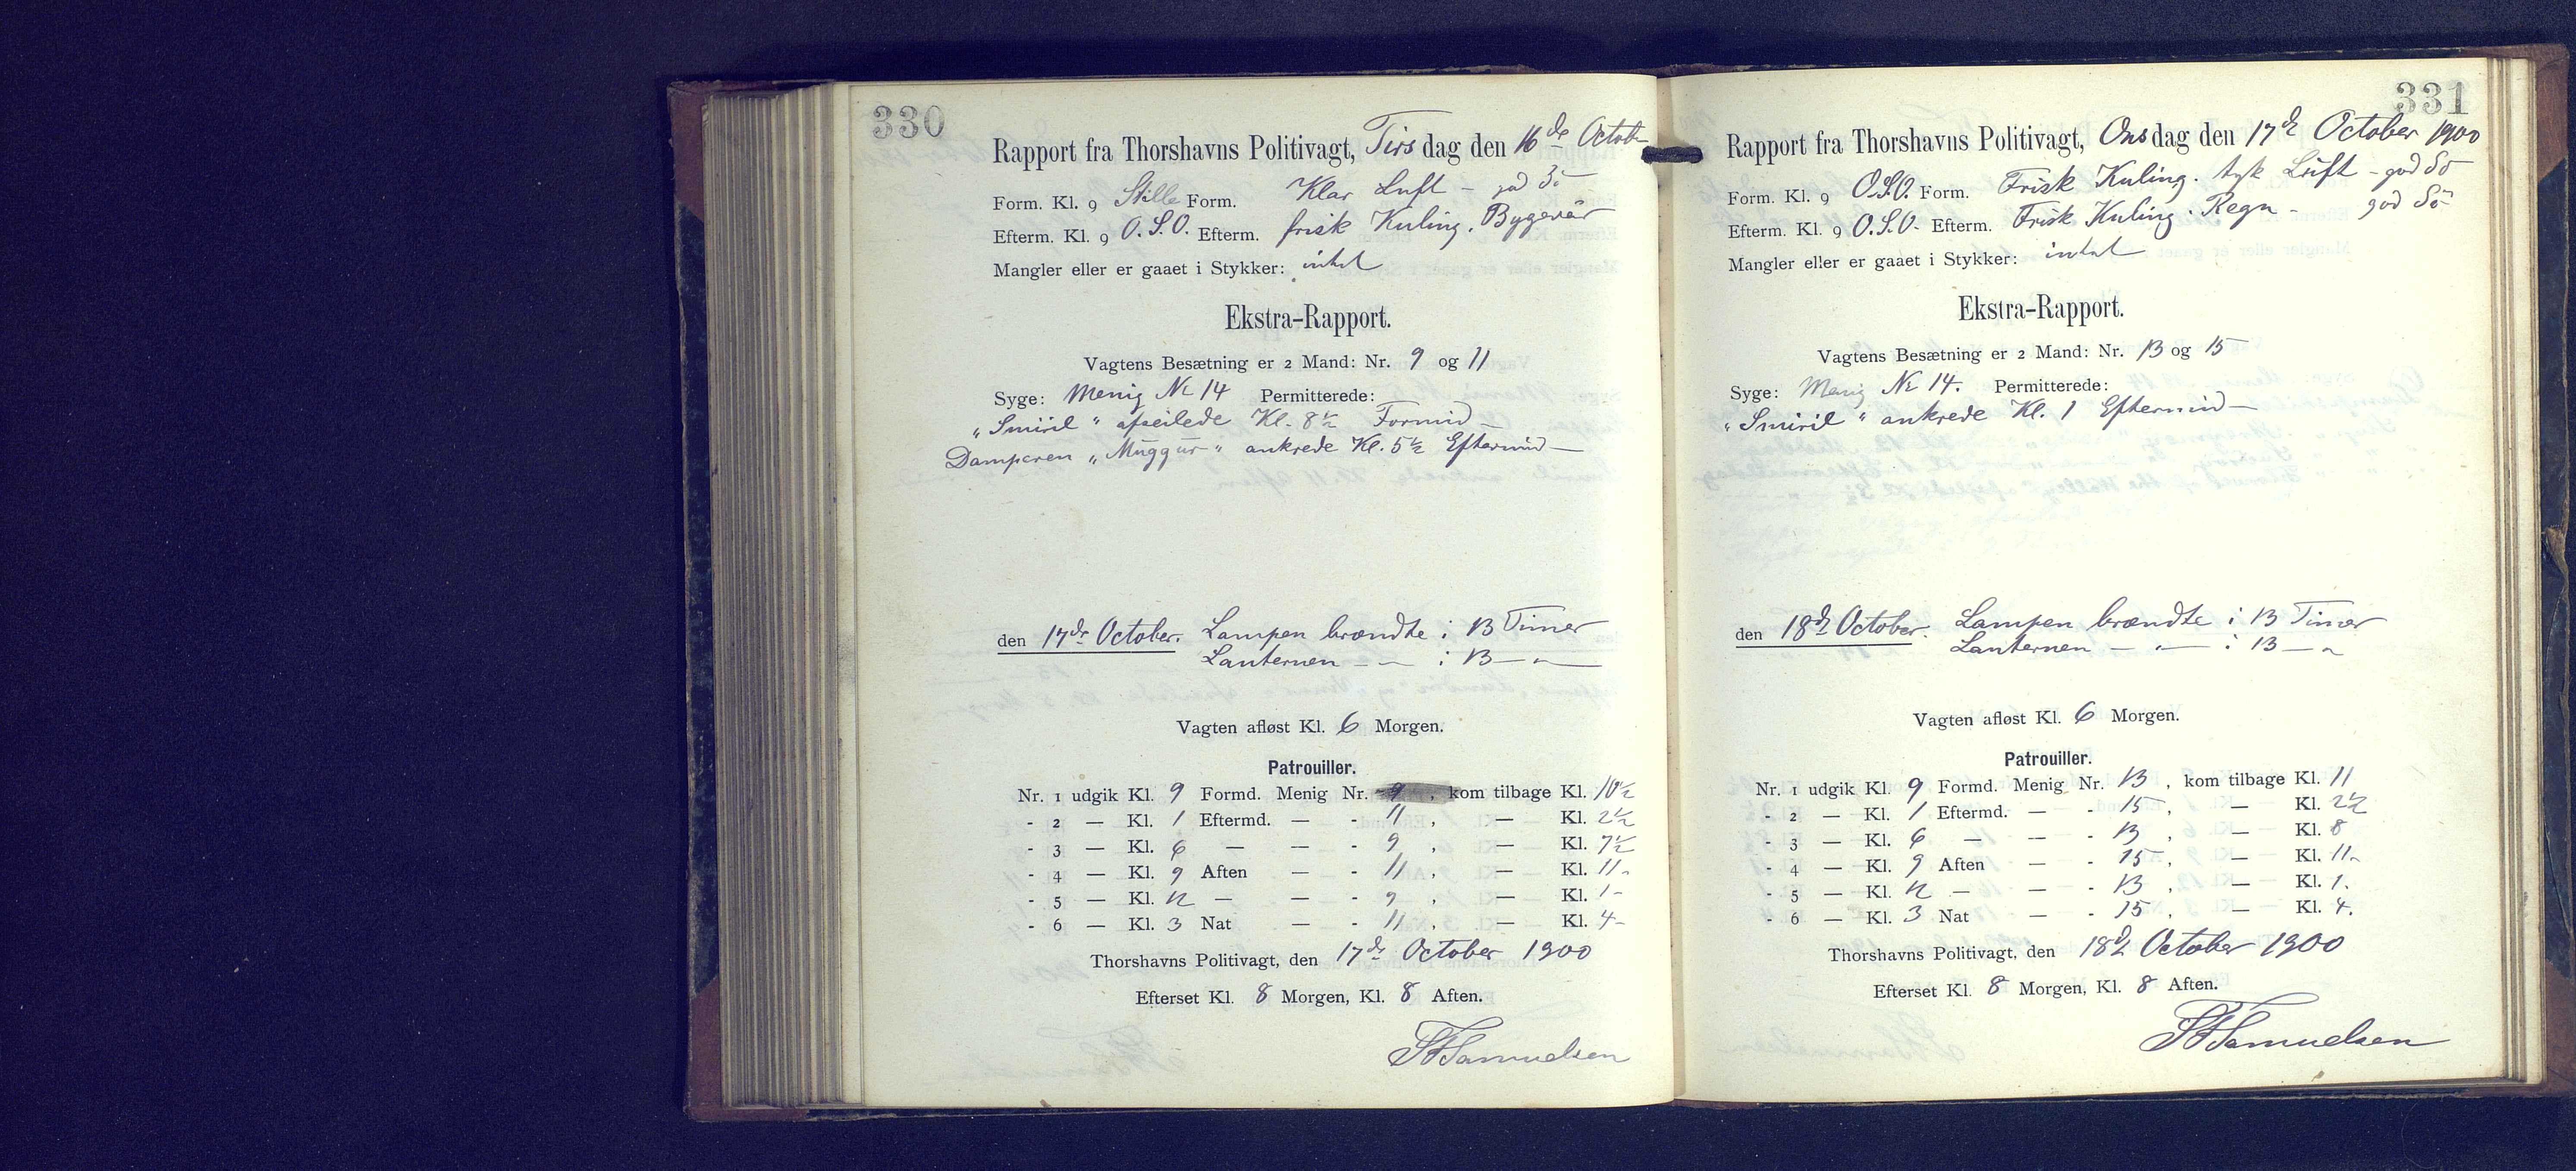 330
Rapport fra Thorshavns Politivagt, Tirsdag den 16de Octob
Form. Kl. 9 Stille Form. Klar Luft - god Sö
Efterm. Kl. 9 O.S.O. Efterm. frisk Kuling. Bygevär
Mangler eller er gaaet i Stykker: intet
Ekstra-Rapport.
Vagtens Besætning er 2 Mand: Nr. 9 og 11
Syge: Menig Nr 14 Permitterede:
"Smiril" afseilede Kl. 8½ Formid —
Damperen "Muggur" ankrede Kl. 5½ Eftermid —
den 17de October. Lampen brændte i 13 Timer
Lanternen — " — i 13 — " —
Vagten afløst Kl. 6 Morgen.
Patrouiller.
Nr. 1 udgik Kl. 9 Formd. Menig Nr. 9 , kom tilbage Kl. 10½
- 2 — Kl. 1 Eftermd. — - 11 , — Kl. 2½
- 3 — Kl. 6 — — - 9 , — Kl. 7½
- 4 — Kl. 9 Aften — - 11 , — Kl. 11 -
- 5 — Kl. 12 — — - 9 , — Kl. 1 -
- 6 — Kl. 3 Nat — - 11 , — Kl. 4 -
Thorshavns Politivagt, den 17de October 1900
Efterset Kl. 8 Morgen, Kl. 8 Aften.
Samuelsen
331
Rapport fra Thorshavns Politivagt, Onsdag den 17de October 1900
Form. Kl. 9 O.S.O. Form. Frisk Kuling. tyk Luft - god Sö
Efterm. Kl. 9 O.S.O. Efterm. Frisk Kuling. Regn - god Sö
Mangler eller er gaaet i Stykker: intet
Ekstra-Rapport.
Vagtens Besætning er 2 Mand: Nr. 13 og 15
Syge: Menig Nr 14. Permitterede:
"Smiril" ankrede Kl. 1 Eftermid —
den 18de October. Lampen brændte i 13 Timer
Lanternen — " — i 13 — "
Vagten afløst Kl. 6 Morgen.
Patrouiller.
Nr. 1 udgik Kl. 9 Formd. Menig Nr. 13 , kom tilbage Kl. 11
- 2 — Kl. 1 Eftermd. — - 15 , — Kl. 2½
- 3 — Kl. 6 — — - 13 , — Kl. 8
- 4 — Kl. 9 Aften — - 15 , — Kl. 11 -
- 5 — Kl. 12 — — - 13 , — Kl. 1.
- 6 — Kl. 3 Nat — - 15 , — Kl. 4.
Thorshavns Politivagt, den 18de October 1900
Efterset Kl. 8 Morgen, Kl. 8 Aften.
Samuelsen